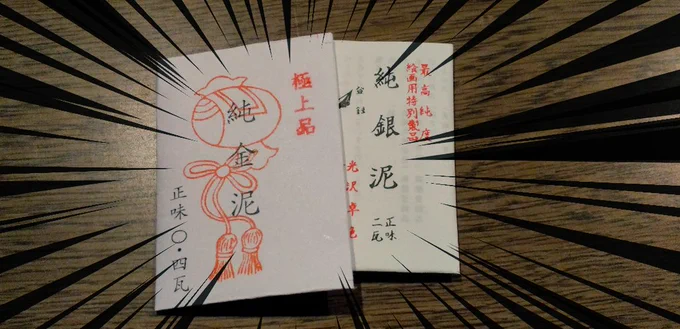 極上品
純金泥
正味〇・四瓦
最高純度
絵画用特別製品
純銀泥
正味
二瓦
光沢卓